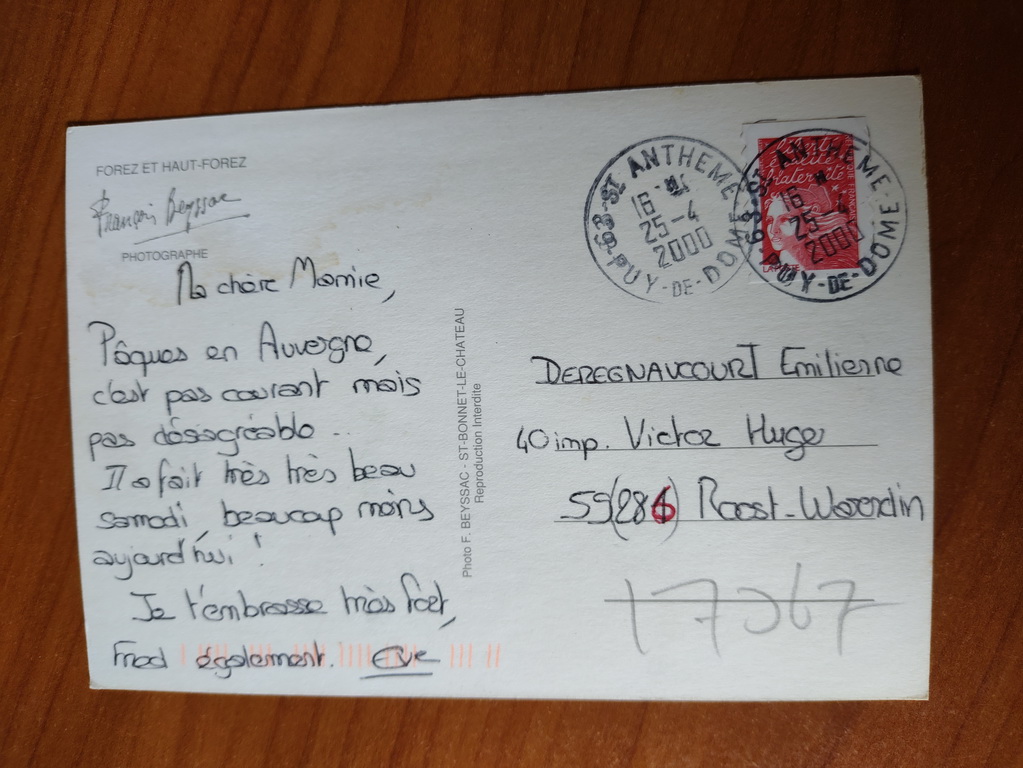 FOREZ ET HAUT-FOREZ
François Beyssac
PHOTOGRAPHE
Ma chère Mamie,
Pâques en Auvergne,
c'est pas courant mais
pas désagréable..
Il a fait très très beau
samedi, beaucoup moins
aujourd'hui !
Je t'embrasse très fort,
Fred également. Eve
Photo F. BEYSSAC - ST-BONNET-LE-CHATEAU
Reproduction Interdite
63-ST ANTHEME
16
25-4
2000
PUY-DE-DOME
63-ST ANTHEME
16
25-4
2000
PUY-DE-DOME
liberté
égalité
fraternité
LA POSTE
DEREGNAUCOURT Emilienne
40 imp. Victor Hugo
59(286) Roost-Warendin
17067